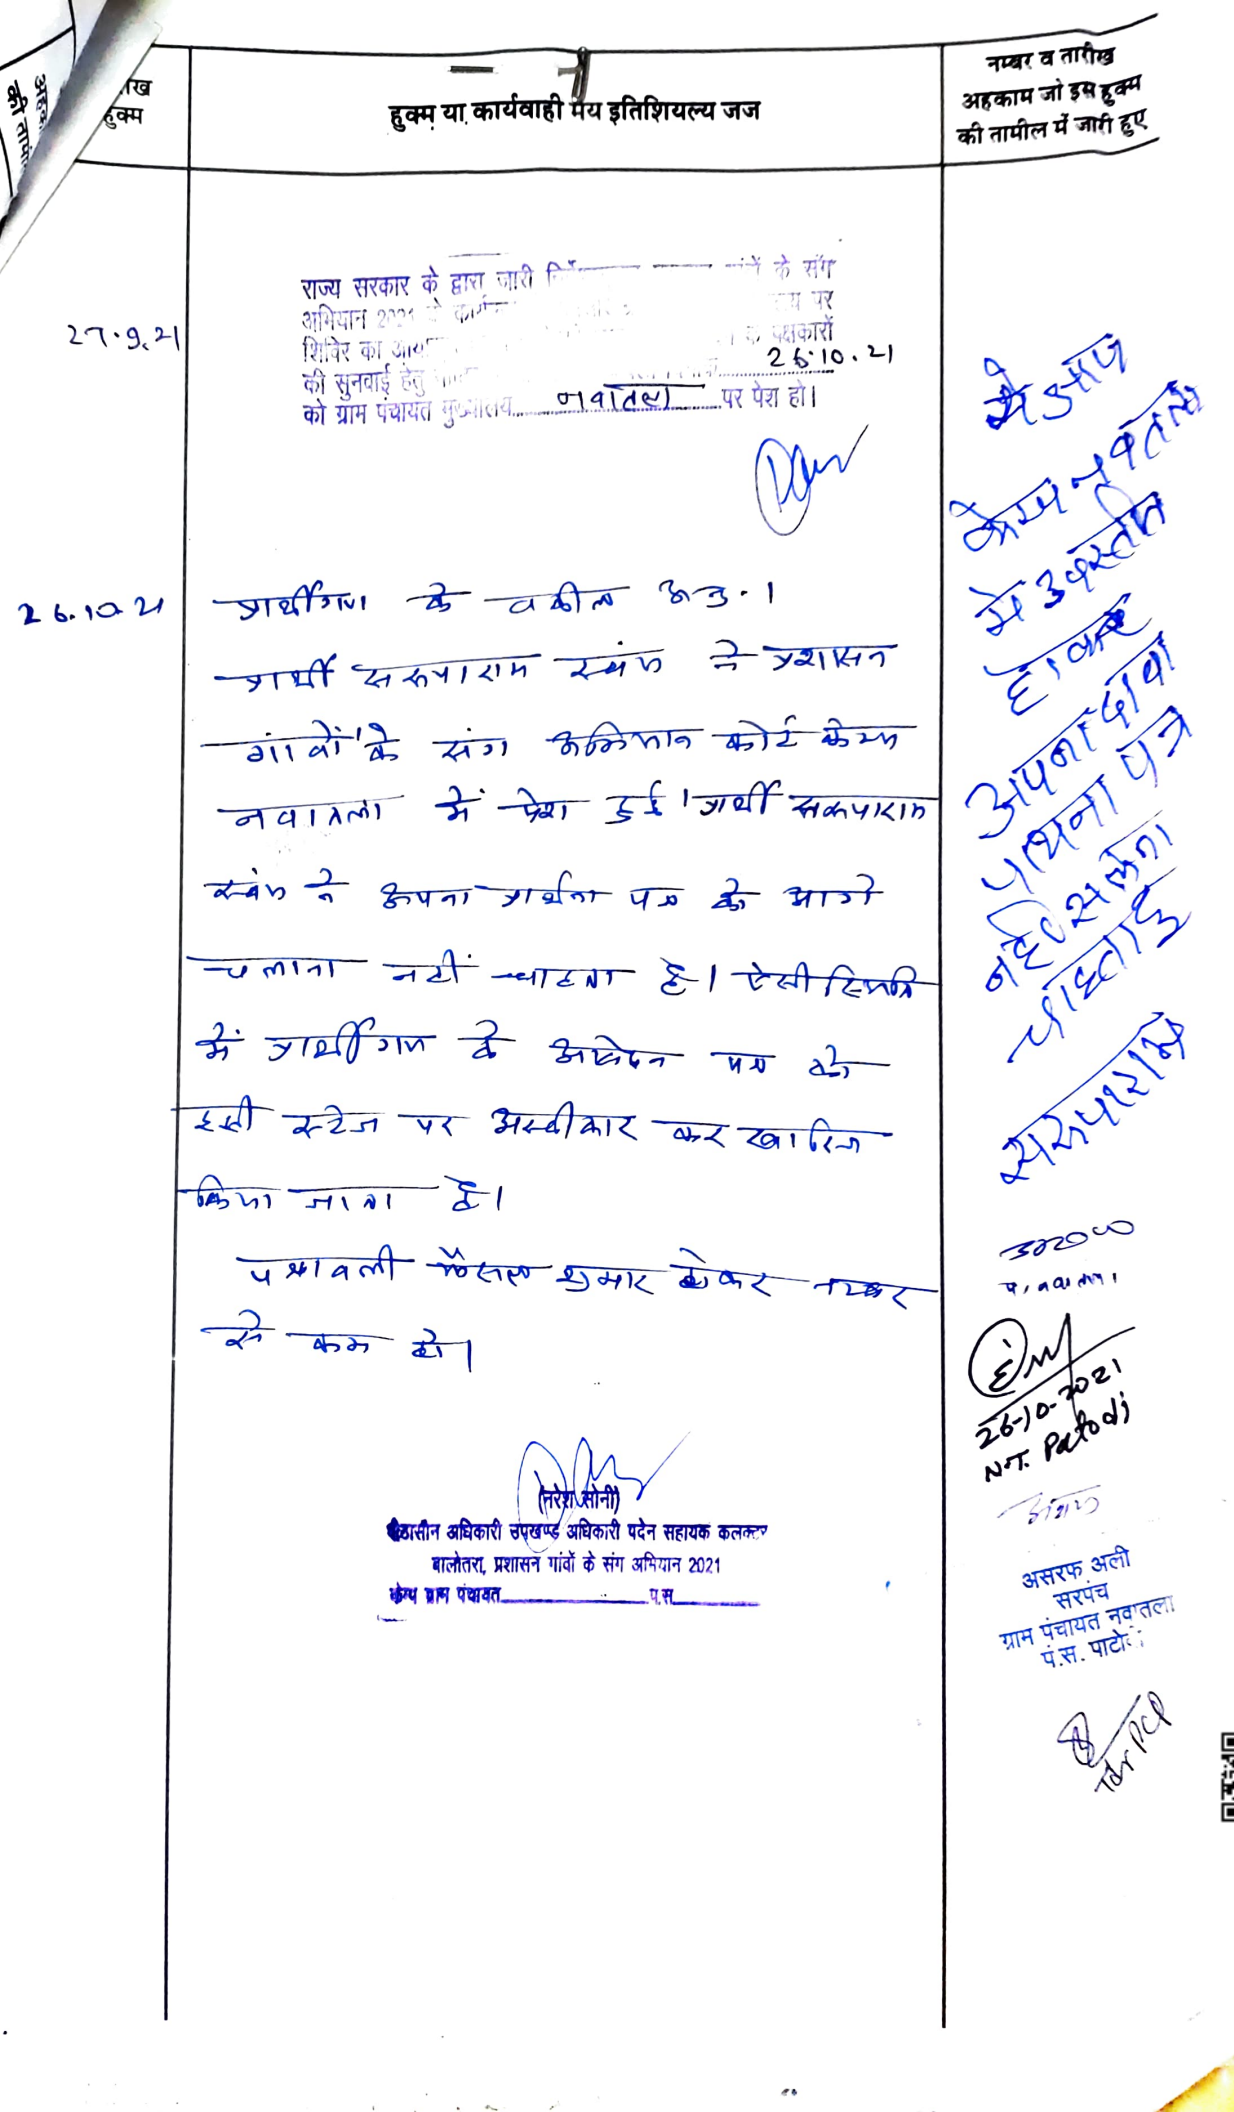 हुक्म
हुक्म या कार्यवाही मय इतिशियल्य जज
नम्बर व तारीख
अहकाम जो इस हुक्म
की तामील में जारी हुए
27.9.21
राज्य सरकार के द्वारा जारी के संग
अभियान 2021 पर
शिविर का पक्षकारों
की सुनवाई हेतु 26.10.21
को ग्राम पंचायत मुख्यालय नवातला पर पेश हो।
26.10.21
प्रार्थीगण के वकील अनु.।
प्रार्थी सरूपाराम स्वंय ने प्रशासन
गांवों के संग अभियान कोर्ट केम्प
नवातला में पेश हुई। प्रार्थी सरूपाराम
स्वंय ने अपना प्रार्थना पत्र के आगे
चलाना नहीं चाहता है। ऐसी स्थिति
में प्रार्थीगण के आवेदन पत्र को
इसी स्टेज पर अस्वीकार कर खारिज
किया जाता है।
पत्रावली फैसल शुमार होकर नम्बर
से कम हो।
(नरेश सोनी)
पीठासीन अधिकारी उपखण्ड अधिकारी पदेन सहायक कलक्टर
बालोतरा, प्रशासन गांवों के संग अभियान 2021
केम्प ग्राम पंचायत प.स.
मे आज
केम्प नवतला
मे उपस्तीत
अपना दावा
प्राथना पत्र
चाहता हु
सरूपाराम
26-10-2021
N.T. Patodi
असरफ अली
सरपंच
ग्राम पंचायत नवातला
पं.स. पाटो